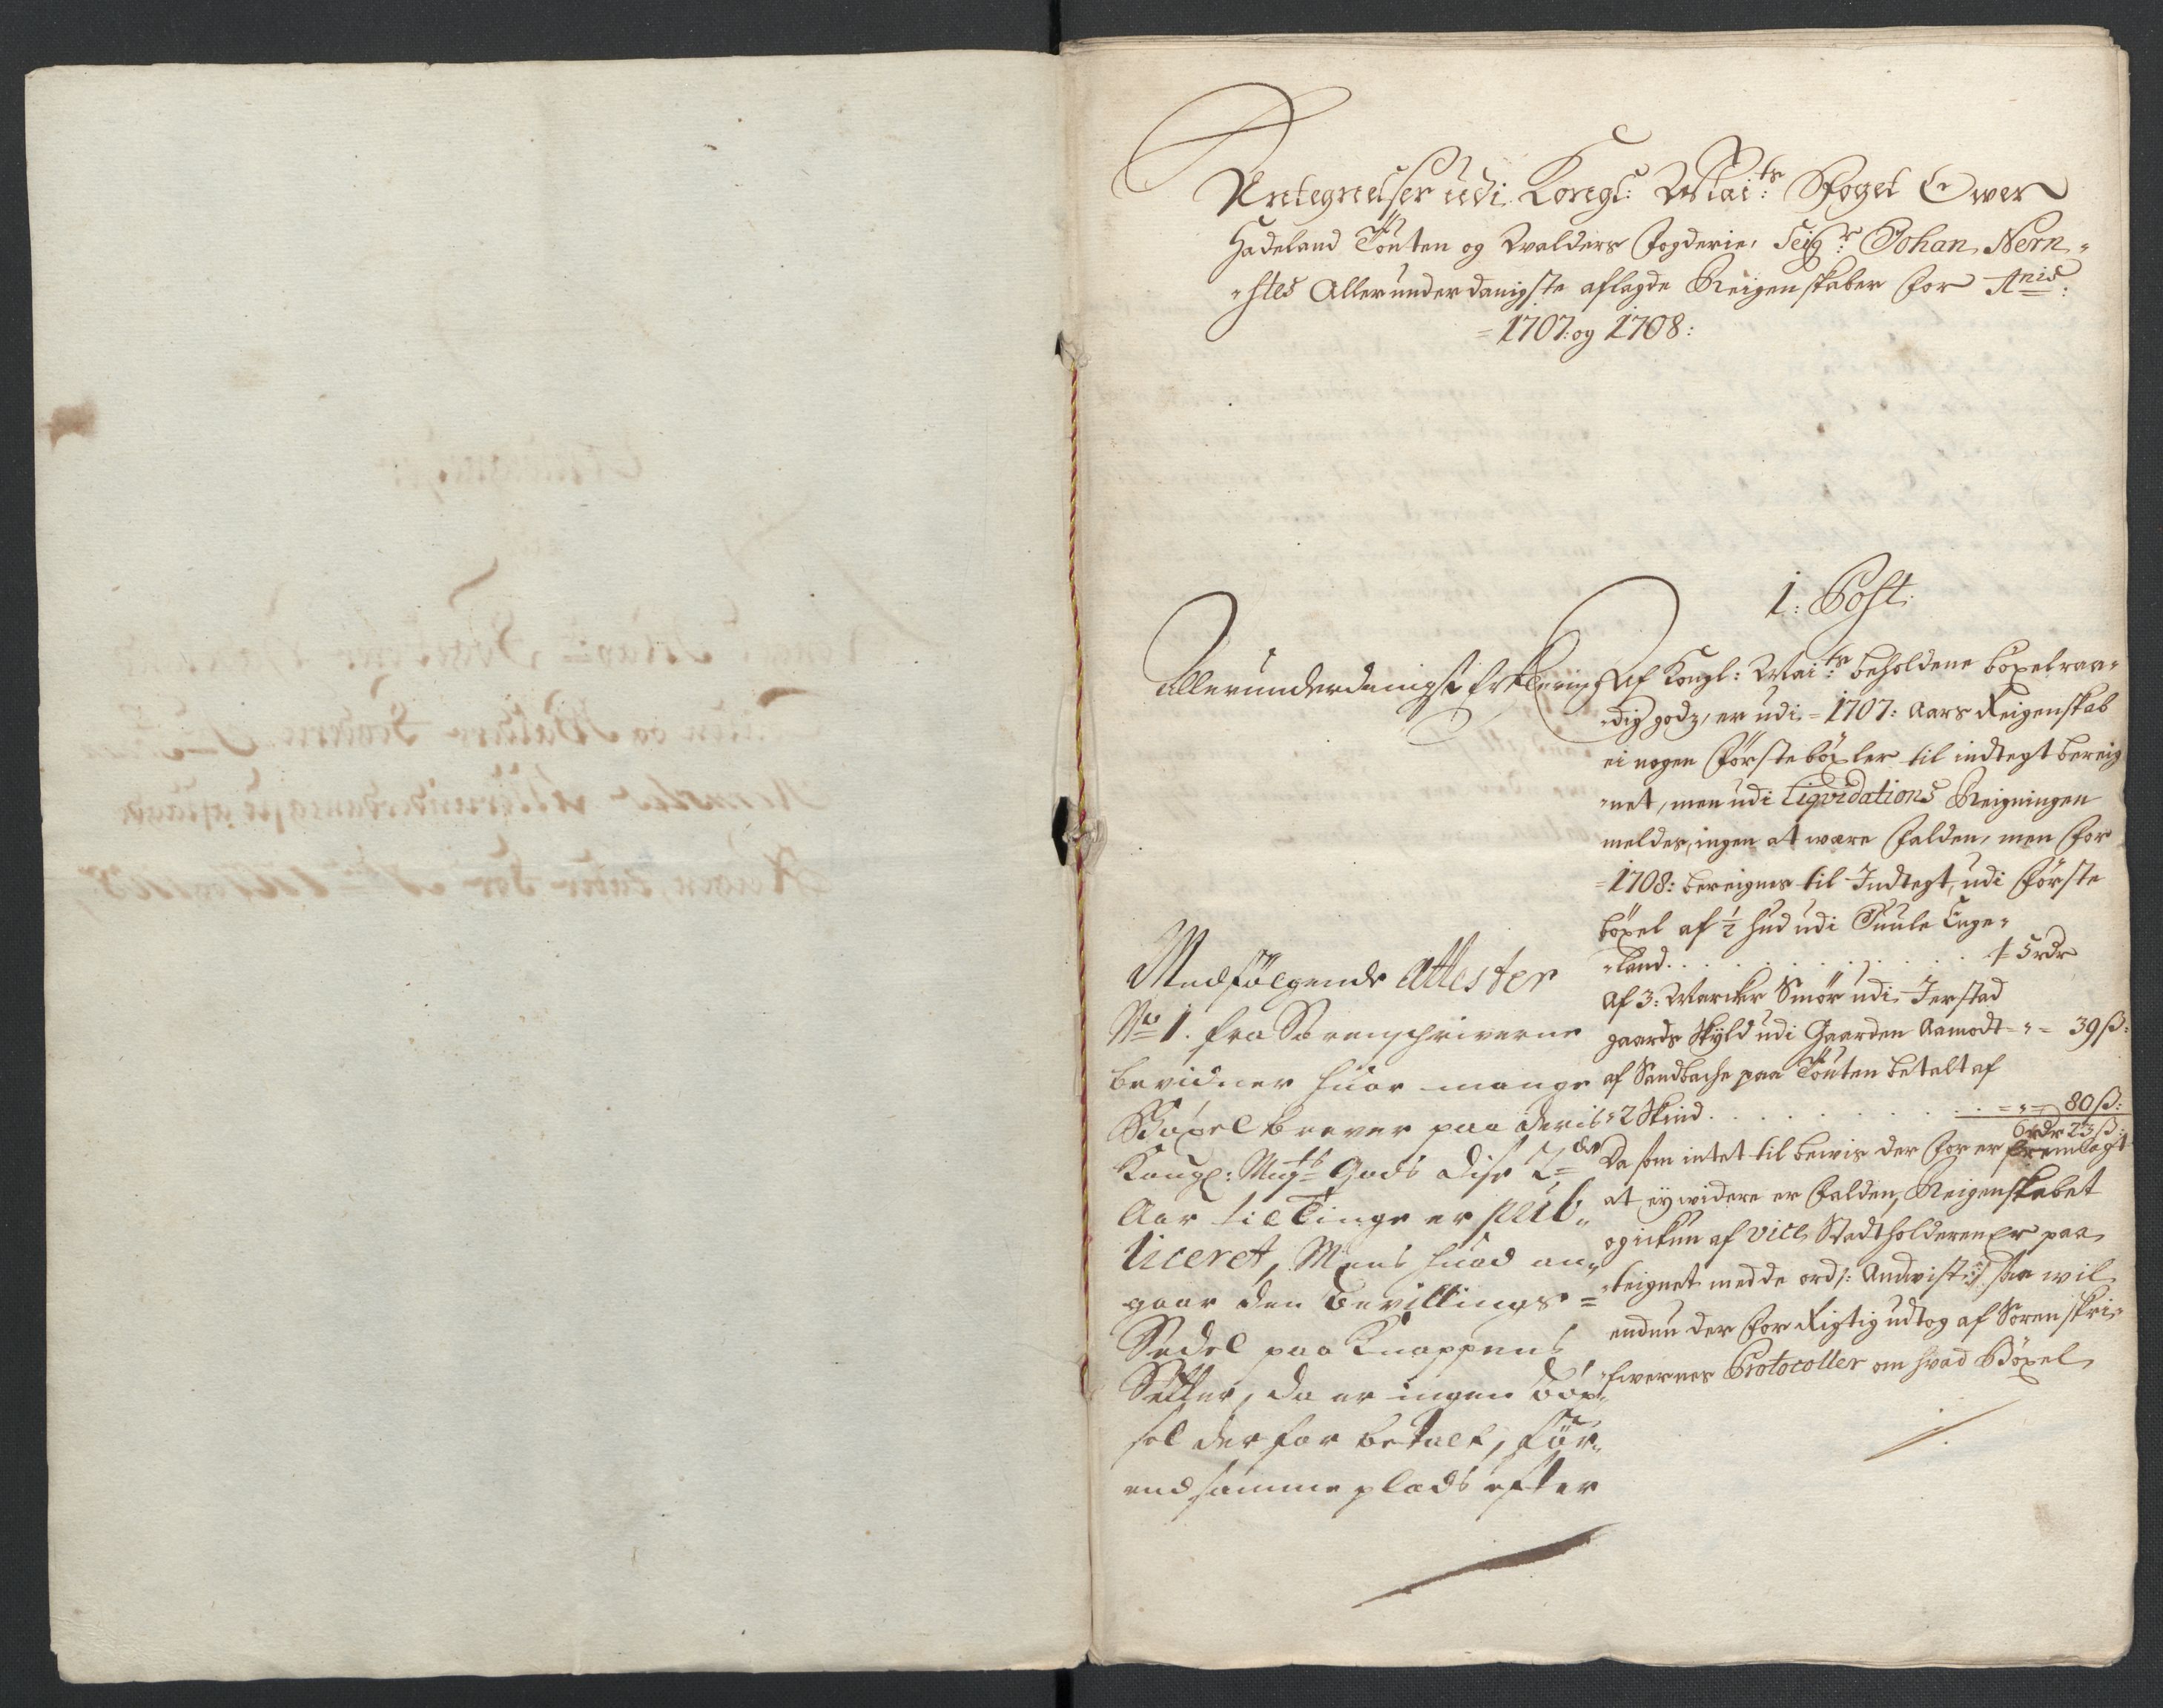 Antegnelser udi Kongl: Mai:ts Foget Ower
Hadeland Touten og Walders fogderie, Seig:r Johan Nern-
"stes Allerunderdanigste aflagde Reigenskaber for A:nis
=1707: og 1708:
1: Post.
Allerunderdanigst Erklering
Af Kongl: Mai:ts beholdene böxelraa-
"dig godz, er udi =1707: Aars Reigenskab
ei nogen förste böxler til indtegt bereig
"net, men udi Liqvidations Reigningen
meldes, ingen at were falden, men for
=1708: bereignes til Indtegt, udi förste
böxel af 1/2 hud udi Tuule Enge-
"land . . . . . . . . 5 rdr
Af 3: Marcker Smör udi Ierstad
gaards skyld udi Gaarden Aamodt = " = 39 ß:
af Sandbache paa Touten betalt af
"2 Skind . . . . . . . = " = 80 ß:
6 rdr 23 ß:
Da som intet til bewis der for er fremlagt
at ey widere er falden, Reigenskabet
og ickun af Vice Stadtholderen Er paa
"teignet med de ord /: Andvist :/ saa wil
endnu der for Rigtig udtog af Sorenskri-
"fwernes Protocoller om hvad Böxel
Medfölgende Attester
No 1. fra Sorenschriverne
bevidner huor mange
Böxelbrever paa deris
Kongl: Mayts Gods disse 2de
Aar til Tinge er pub-
liceret, Mens huad an-
gaar den bevillings =
Sedel paa Knappens
Setter, da er ingen Böx-
sel derfor betalt, För-
end samme plads efter